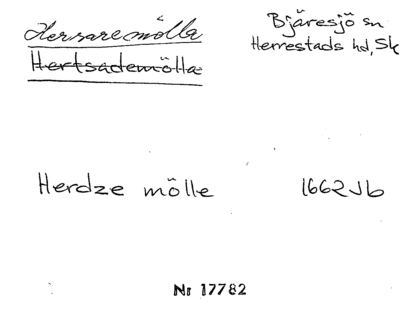 Hersaremölla
Hertsademölla
Bjäresjö sn
Herrestads hd, Sk
Herdze mölle 1662 Jb
Nr 17782